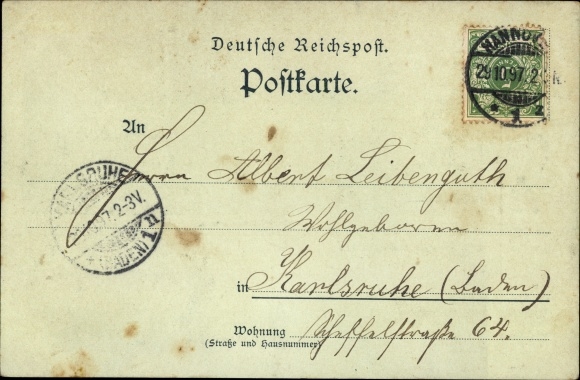 Deutsche Reichspost.
Postkarte.
HANNOVER
29 10 97. 2-
* 1. z
An
Herrn Albert Leibenguth
KARLSRUHE
97. 2-3V.
(BADEN) 1n
Wohlgeboren
in Karlsruhe (Baden)
Wohnung Scheffelstraße 64.
(Straße und Hausnummer)